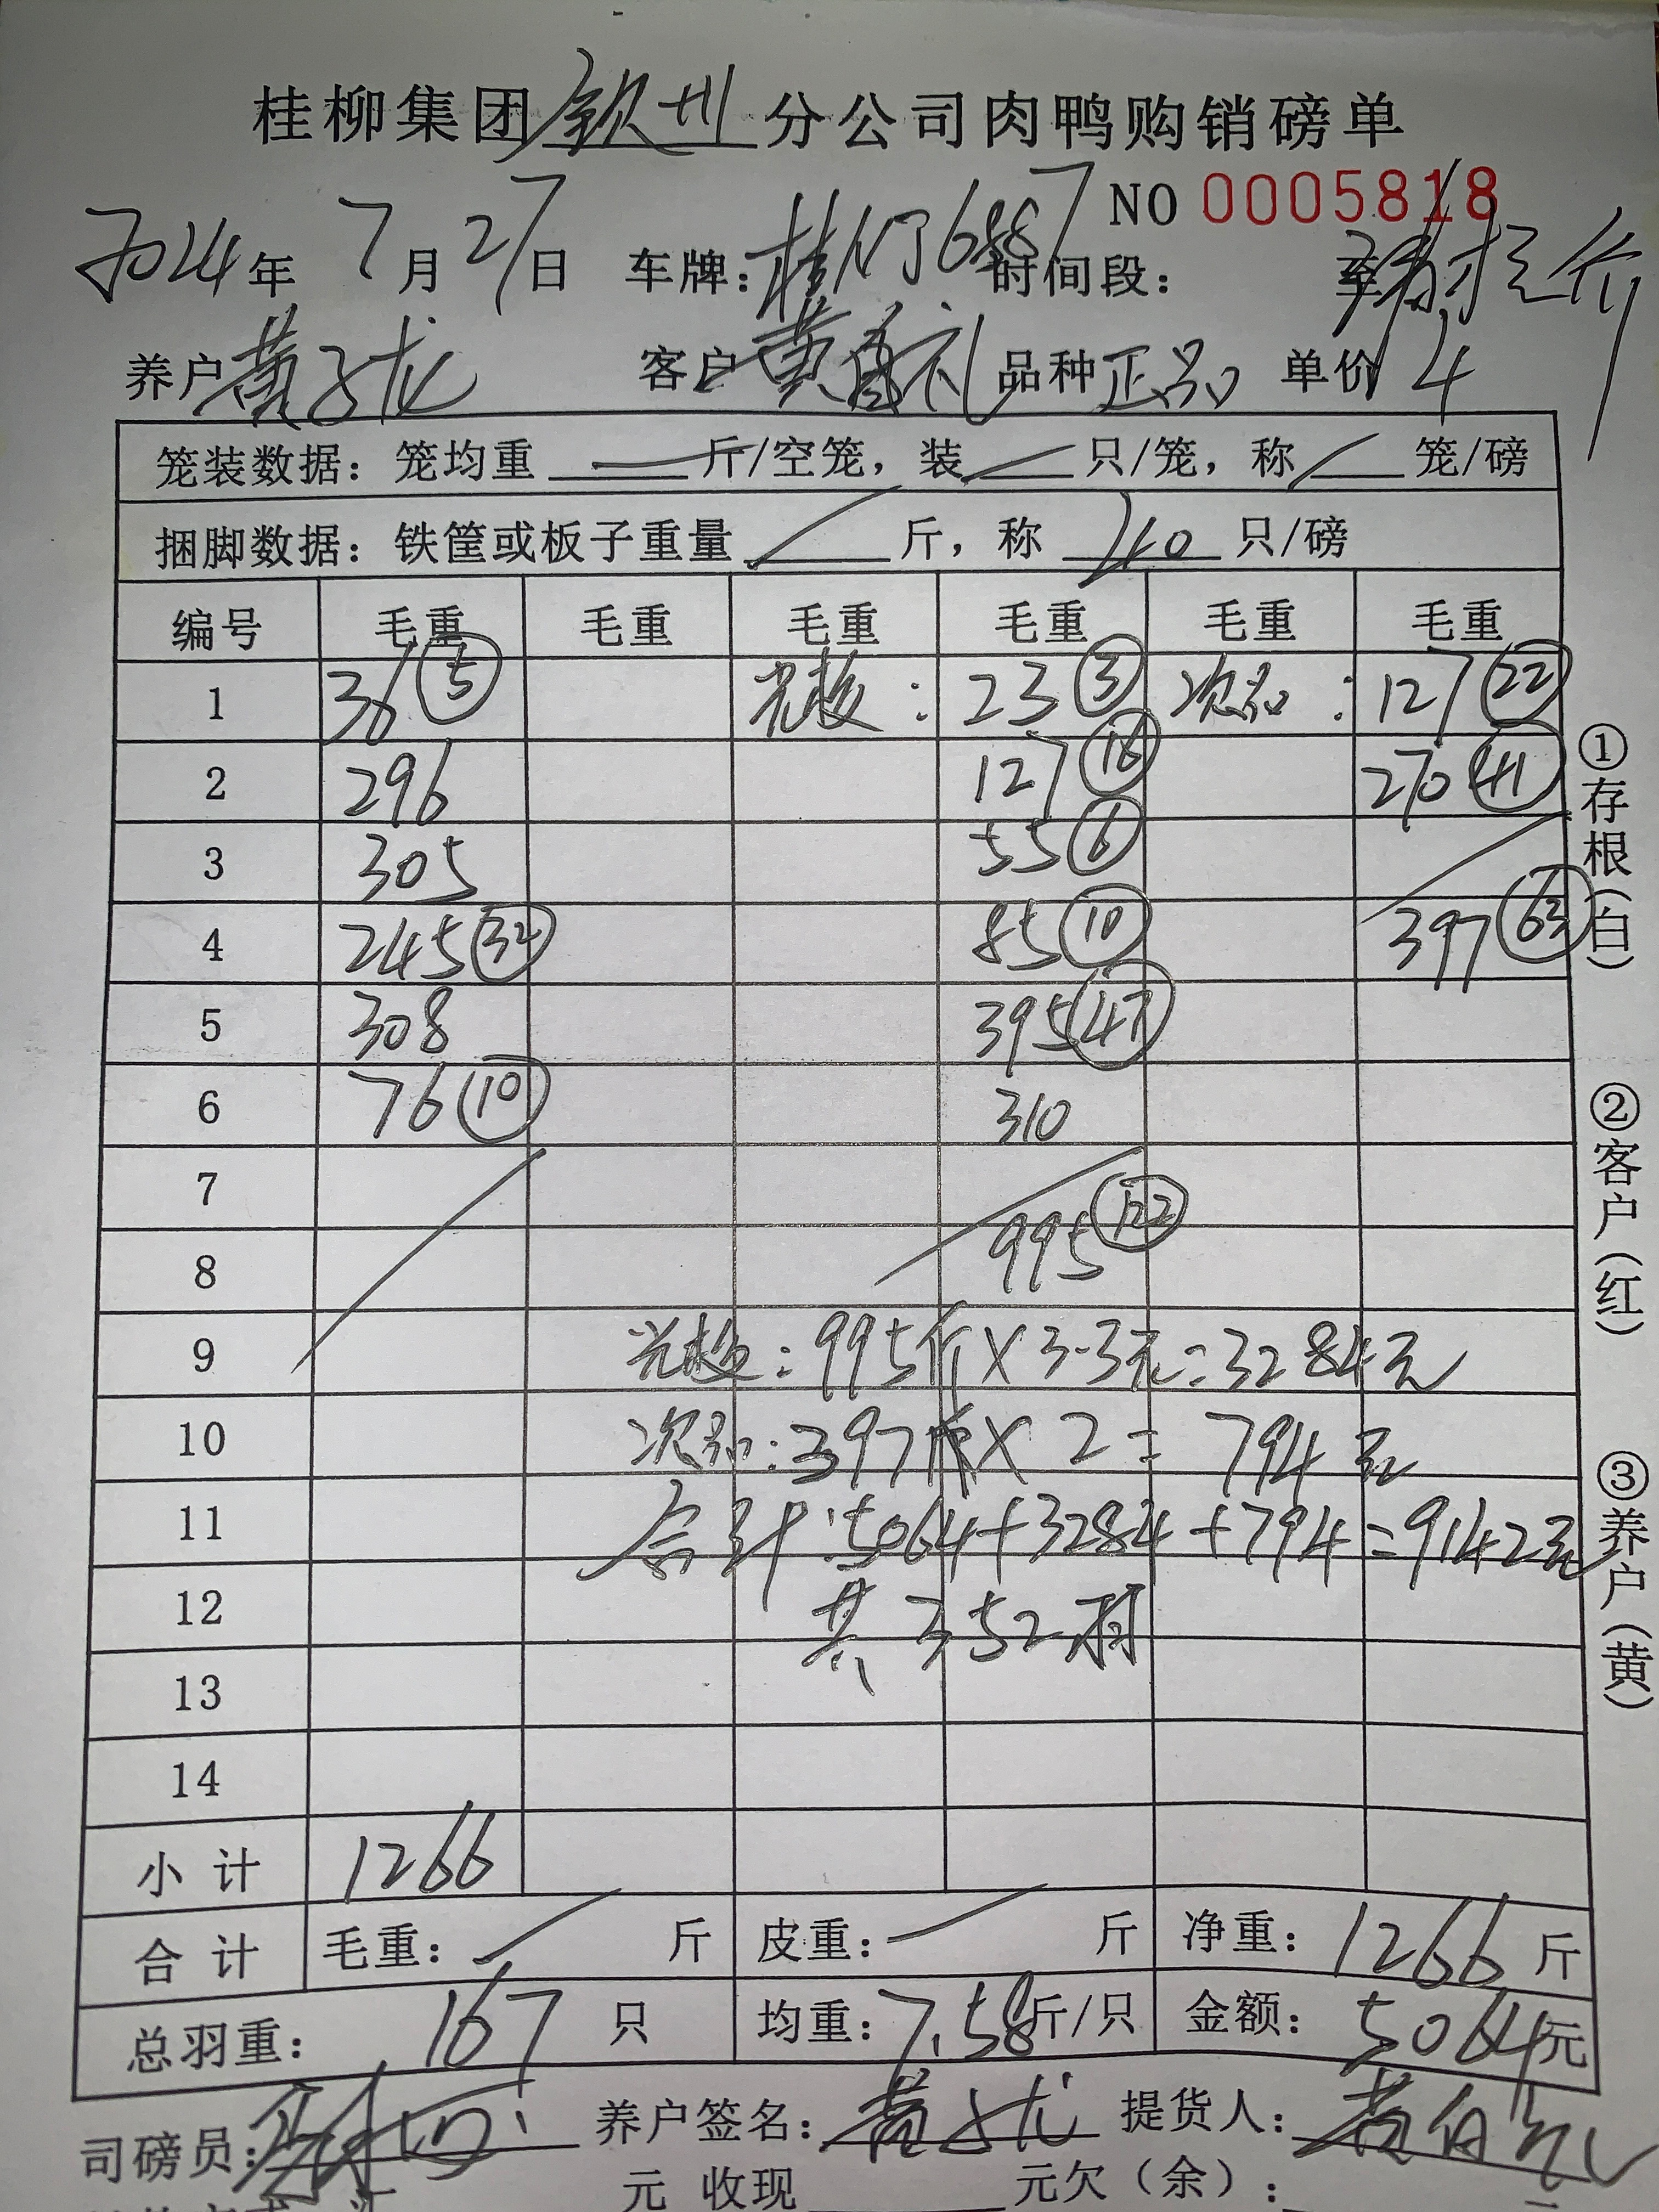 桂柳集团钦州分公司肉鸭购销磅单
NO 0005818
2024年 7月27日 车牌:桂N 时间段: 至
养户黄子龙 客户黄 礼 品种正品 单价 4
笼装数据:笼均重 斤/空笼,装 只/笼,称 笼/磅
捆脚数据:铁筐或板子重量 斤,称 40 只/磅
编号 毛重 毛重 毛重 毛重 毛重 毛重
1 36 ⑤ 光板: 23 ③ 次品: 127 ㉒
2 296 127 ⑯ 270 ㊶
3 305 55 ⑥
4 245 ㉜ 85 ⑩ 397 (63)
5 308 395 ㊼
6 76 ⑩ 310
7 995 (122)
8
9 光板:995斤×3.3元=3284元
10 次品:397斤×2=794元
11 合计:5064+3284+794=9142元
12 共352羽
13
14
小计 1266
合计 毛重: 斤 皮重: 斤 净重:1266斤
总羽重: 167 只 均重:7.58斤/只 金额:5064元
司磅员: 养户签名:黄子龙 提货人:
元 收现 元欠(余):
①存根(白)
②客户(红)
③养户(黄)